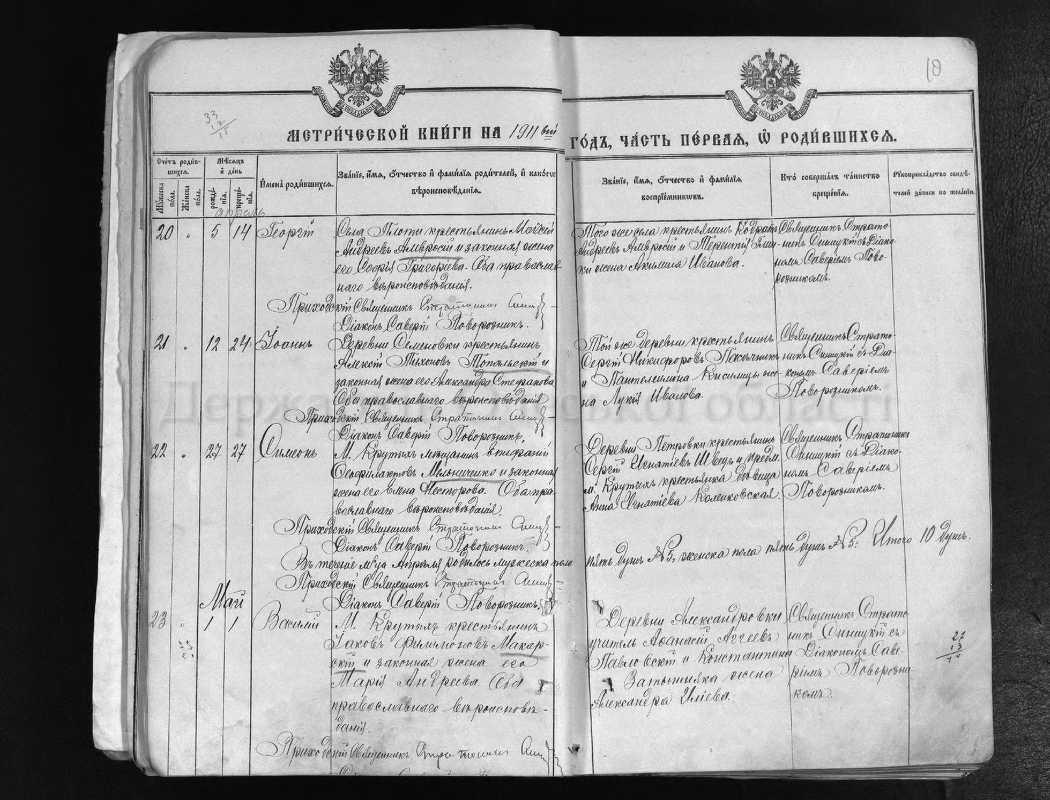 18
33
МЕТРИ́ЧЕСКОЙ КНИ́ГИ НА 1911 вый ГО́ДЪ, ЧА́СТЬ ПЕ́РВАЯ, Ѿ РОДИ́ВШИХСЯ.
Счетъ родив-
шихся.
Мѣсяцъ
и день
Мужеска
пола.
Женска
пола.
рожде-
нія.
креще-
нія.
Имена родившихся.
Званіе, имя, отчество и фамилія родителей, и какого
вѣроисповѣданія.
Званіе, имя, отчество и фамилія
воспріемниковъ.
Кто совершалъ таинство
крещенія.
Рукоприкладство свидѣ-
телей записи по желанію.
Апрѣль
20 „ 5 14 Георгій
Села Плоти крестьянинъ Моисей
Андреевъ Амвросій и законная жена
его Софія Григорьева. Оба православ-
наго вѣроисповѣданія.
Приходскій Священникъ
Діаконъ Саверій Поворозникъ.
Того же села крестьянинъ Кодратъ
Андреевъ Амвросій и
жена Акилина Иванова.
Священникъ Страто-
никъ Синицкій съ Діако-
номъ Саверіемъ Пово-
розникомъ.
21 „ 12 24 Іоаннъ
Деревни Семеновки крестьянинъ
Алексій Тихоновъ Топольскій и
законная жена его Александра Стефанова
Оба православнаго вѣроисповѣданія
Приходскій Священникъ
Діаконъ Саверій Поворозникъ.
Той же деревни крестьянинъ
Сергій Никифоровъ
и Пантелеимона Кисилицы же-
на Лукія Иванова.
Священникъ Страто-
никъ Синицкій съ Діа-
кономъ Саверіемъ
Поворозникомъ.
22 „ 27 27 Симеонъ
М. Крутыхъ мѣщанинъ Епифаній
Феофилактовъ Мельниченко и законная
жена его Елена Несторова. Оба пра-
вославнаго вѣроисповѣданія.
Приходскій Священникъ
Діаконъ Саверій Поворозникъ.
Деревни Петровки крестьянинъ
Сергій Игнатіевъ Швецъ и
м. Крутыхъ крестьянка дѣвица
Анна Игнатіева
Священникъ Стратоникъ
Синицкій съ Діако-
номъ Саверіемъ
Поворозникомъ.
Въ теченіе м-ца Апрѣля родилось мужеска пола пять душъ № 5, женска пола пять душъ № 5. Итого 10 душъ.
Приходскій Священникъ
Діаконъ Саверій Поворозникъ
Май
23 „ 1 1 Василій
М. Крутыхъ крестьянинъ
Іаковъ Филимоновъ Макар-
скій и законная жена его
Марія Андреева Оба
православнаго вѣроисповѣ-
данія.
Приходскій Священникъ
Деревни Александровки
учитель Афанасій Агеевъ
Павловскій и Константина
жена
Александра Иліева.
Священникъ Страто-
никъ Синицкій съ
Діакономъ Саве-
ріемъ Поворозни-
комъ.
27